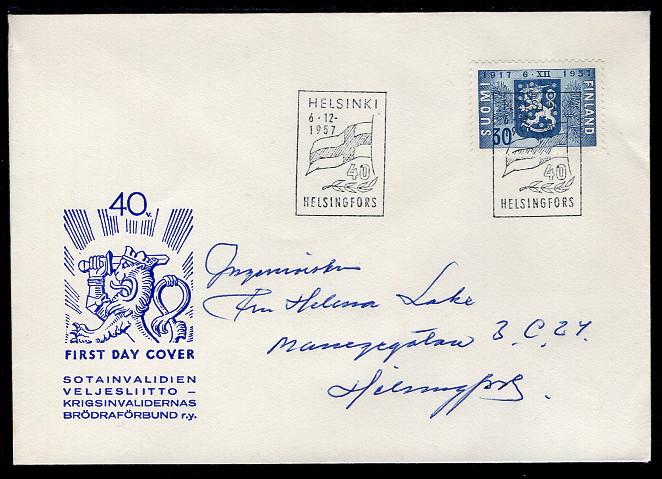 HELSINKI
6·12·
1957
40
HELSINGFORS
1917 6·XII 1957
SUOMI
FINLAND
30
40
HELSINGFORS
40 v.
FIRST DAY COVER
SOTAINVALIDIEN
VELJESLIITTO –
KRIGSINVALIDERNAS
BRÖDRAFÖRBUND r.y.
Fru Helena Lake
Manegegatan 3. C. 24.
Helsingfors.